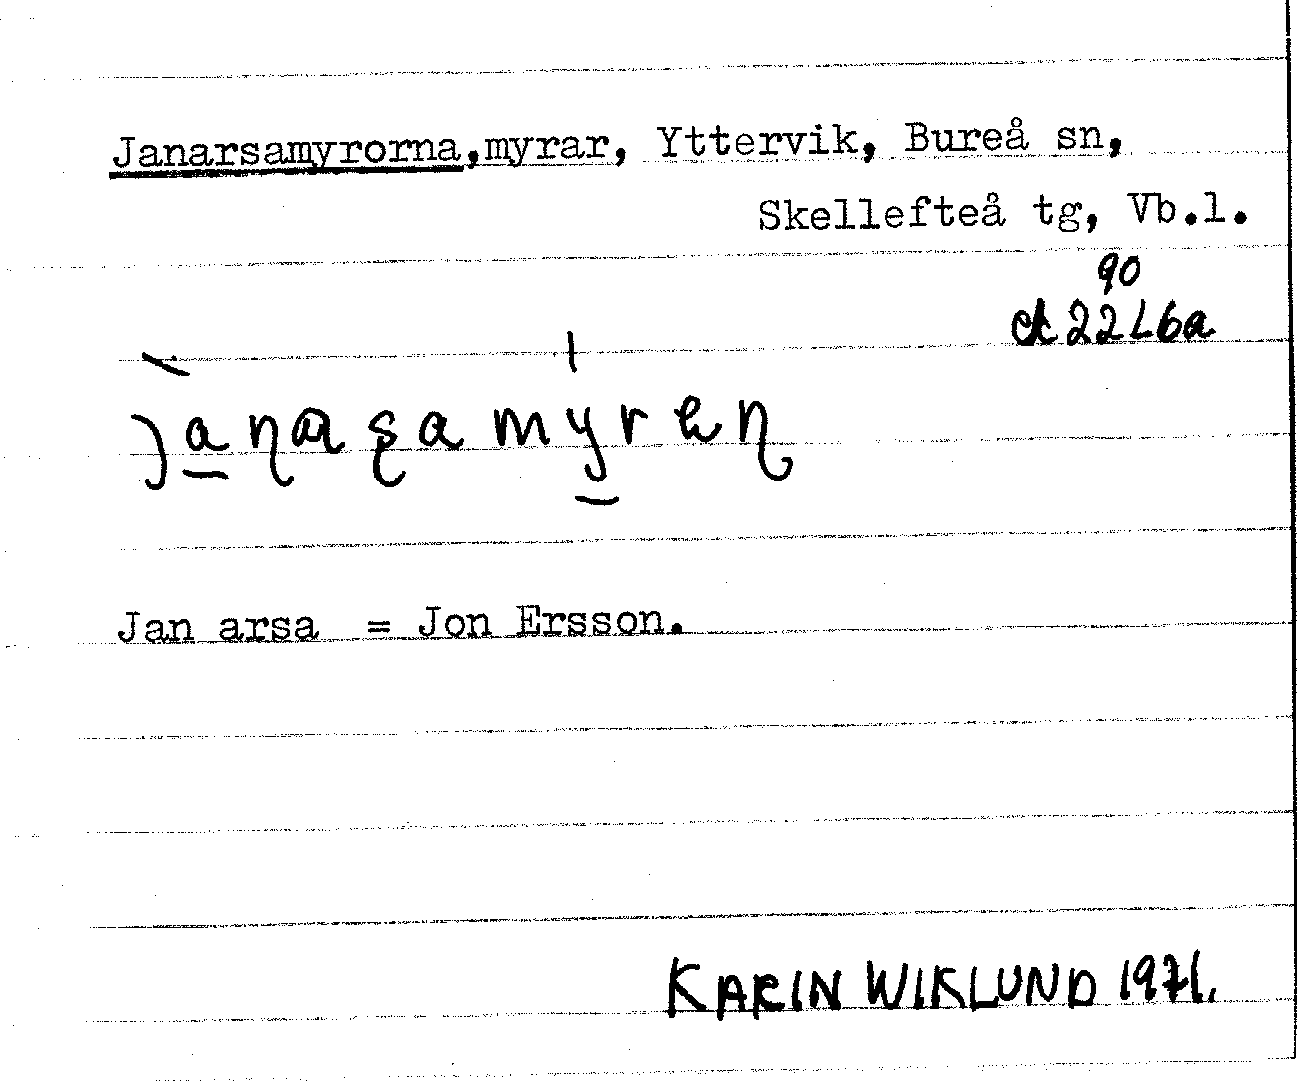 Janarsamyrorna, myrar, Yttervik, Bureå sn,
Skellefteå tg, Vb.l.
90
22L6a
Jan arsa = Jon Ersson.
KARIN WIKLUND 1971.